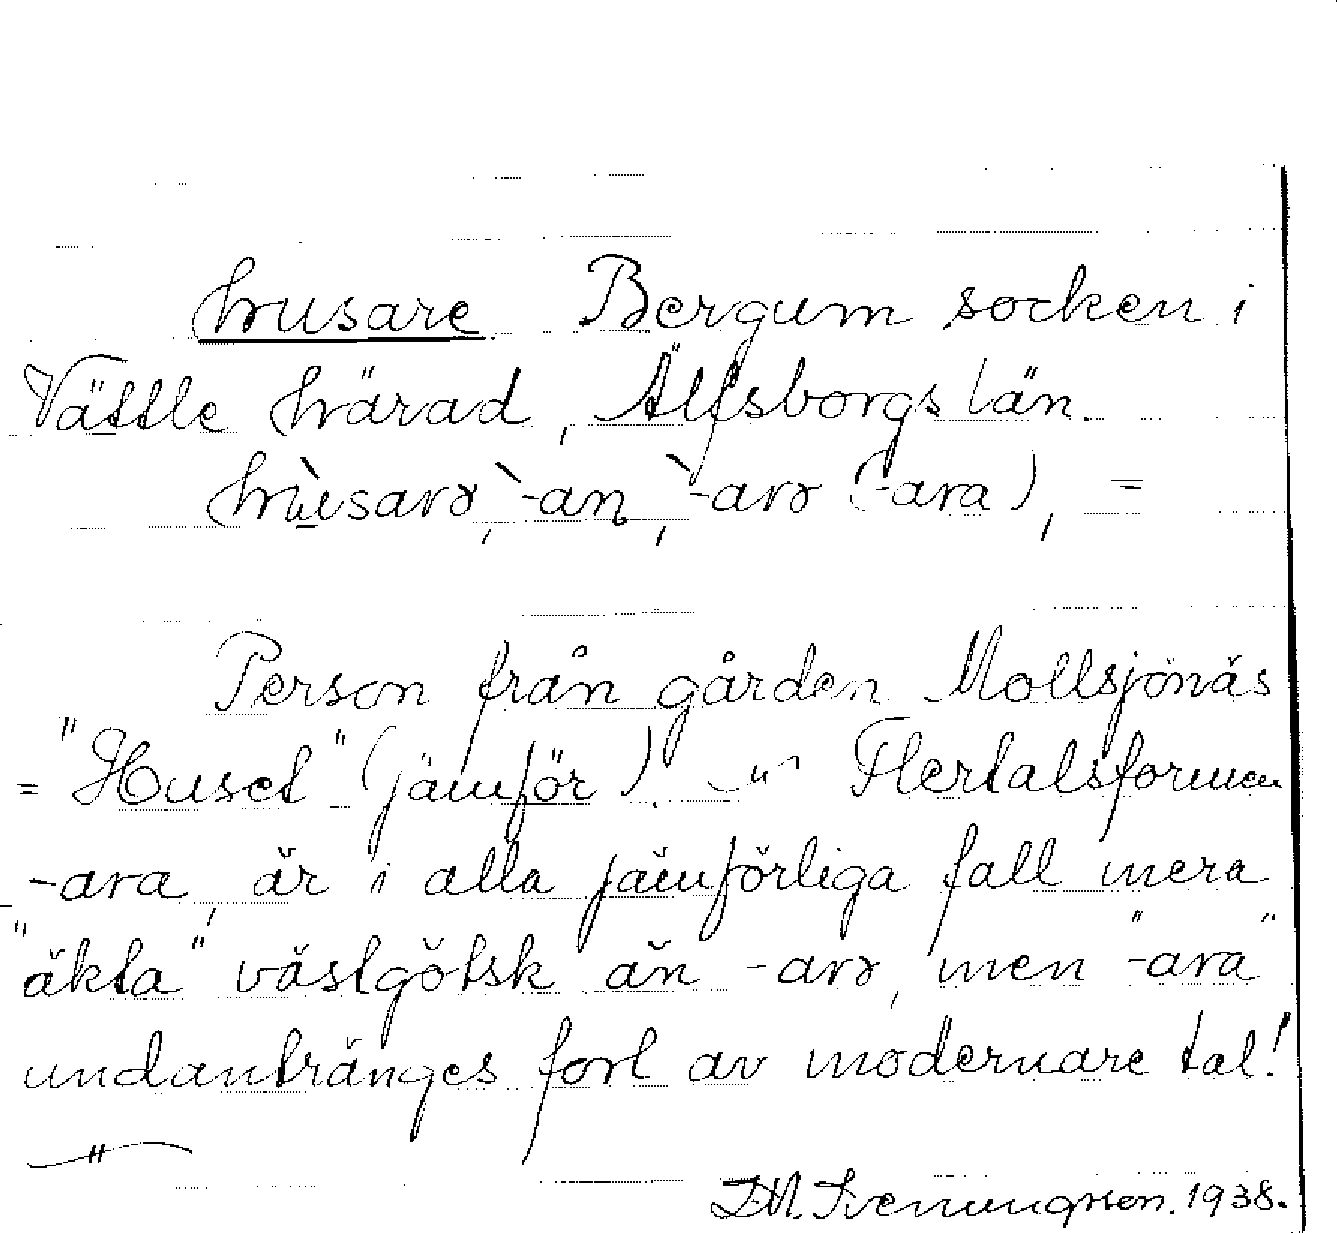 husare Bergum socken i
Vättle härad, Älfsborgs län.
hùsarə, `-an, `-arə (-ara), =
Person från gården Mollsjönäs
= "Huset" (jämför). — " — Flertalsformen
-ara, är i alla jämförliga fall mera
"äkta" västgötsk än -arə, men "-ara"
undantränges fort av modernare tal!
— " —
D.M. Svenungsson. 1938.